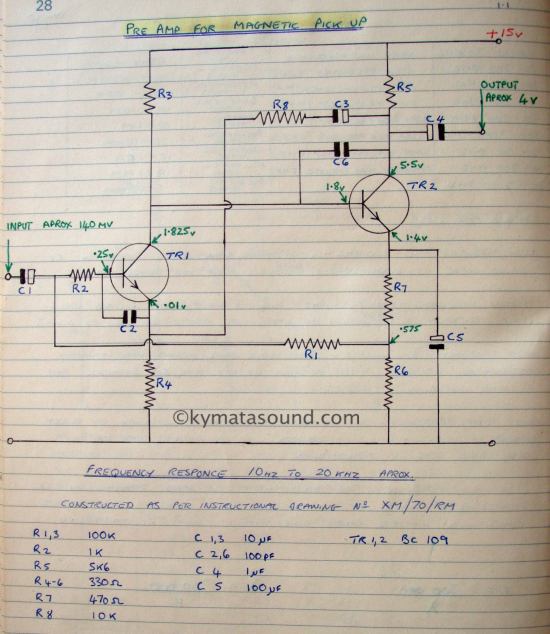 28
1.1
PRE AMP FOR MAGNETIC PICK UP
+15v
R3
R5
OUTPUT
APROX 4V
R8
C3
C4
C6
5.5v
1.8v
TR2
INPUT APROX 140MV
1.825v
1.4v
.25v
TR1
C1
R2
R7
.01v
C2
.575
C5
R1
R4
R6
©kymatasound.com
FREQUENCY RESPONCE 10HZ TO 20KHZ APROX.
CONSTRUCTED AS PER INSTRUCTIONAL DRAWING Nº XM/70/RM
R 1,3 100K C 1,3 10µF TR 1,2 BC 109
R2 1K C 2,6 100PF
R5 5K6 C 4 1µF
R 4-6 330Ω C 5 100µF
R7 470Ω
R 8 10K